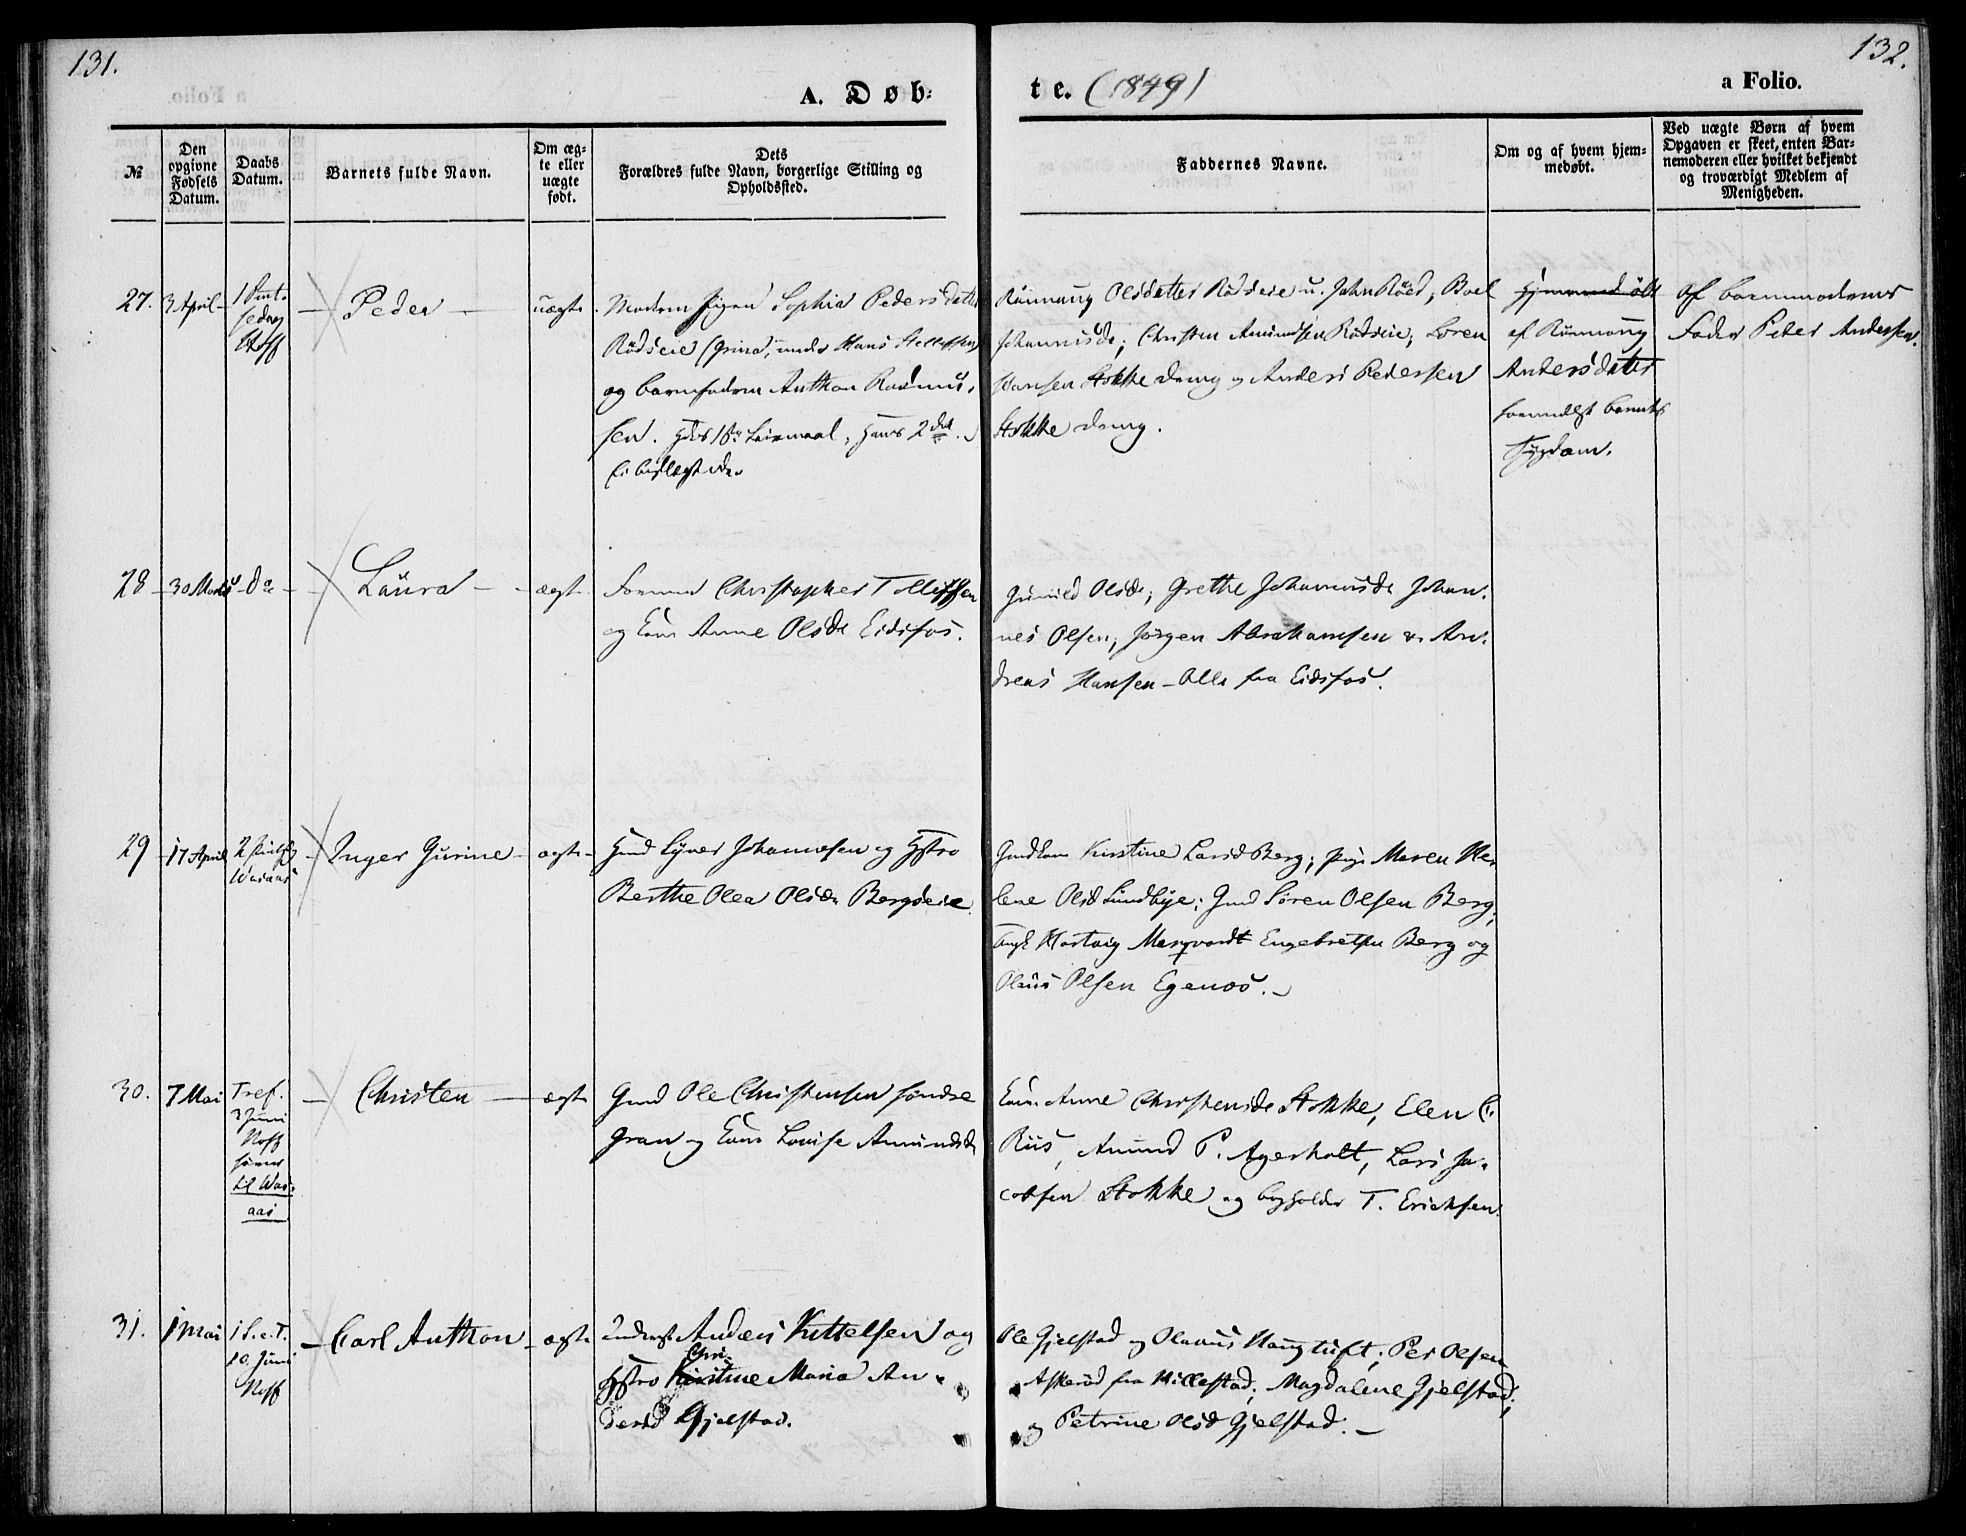 131.
132.
a Folio.
A. Døb-
te. (1849)
№
Den opgivne Fødsels Datum.
Daabs Datum.
Barnets fulde Navn.
Om ægte eller uægte født.
Dets Forældres fulde Navn, borgerlige Stilling og Opholdssted.
Faddernes Navne.
Om og af hvem hjemmedøbt.
Ved uægte Børn af hvem Opgaven er skeet, enten Barnemoderen eller hvilket bekjendt og troværdigt Medlem af Menigheden.
27. 3 April
1
Hoff
Peder
uægte
Moderen Pigen Sophia Pedersdatter
Rødseie
og barnefadren Anthon Rasmus-
sen.
Rønnaug Olsdatter Rødseie
Johannisdr; Christen Amundsen Rødseie; Søren
Hansen Stokke dreng og Anders Pedersen
Stokke dreng.
af Rønnaug
Andersdatter
formedelst barnets
Sygdom.
Af barnmoderens
Fader Peter Andersen.
28 30 Marts Do
Laura
ægte
Christopher Tollefsen
og Kone Anne Olsdr Eidsfos.
Gunild Olsdr; Grethe Johannisdr Johan-
nes Olsen; Jørgen Abrahamsen & An-
dreas Hansen - Alle fra Eidsfos.
29 17 April
2
Inger Gurine
ægte
Johannesen og Hstro
Berthe Olea Olsdr Bergseie
Gmdkone Kirstine Larsd Berg; pige Maren He-
lene Olsd Sundbye; Gmd Søren Olsen Berg;
Ungk Hartvig Marqvardt Engebretsen Berg og
Olaus Olsen
30. 7 Mai
Tref.
3 Juni
Hoff
til Was-
aas
Christen
ægte
Gmd Ole Christensen søndre
Gran og Kone Lovise Amundsdr
Kone Anne Christensdr Stokke, Elen
Riis, Amund P. Agerholt, Lars Ja-
cobsen Stokke og T. Erichsen.
31. 1 Mai
1 S. e. T.
10. Juni
Hoff
Carl Anthon
ægte
Anders Kittelsen og
Chri-
Hstro Kirstine Maria An-
dersd Gjelstad.
Ole Gjelstad og Olaves Haugtuft; Per Olsen
Askerød fra Hillestad; Magdalene Gjelstad;
og Petrine Olsd Gjelstad.